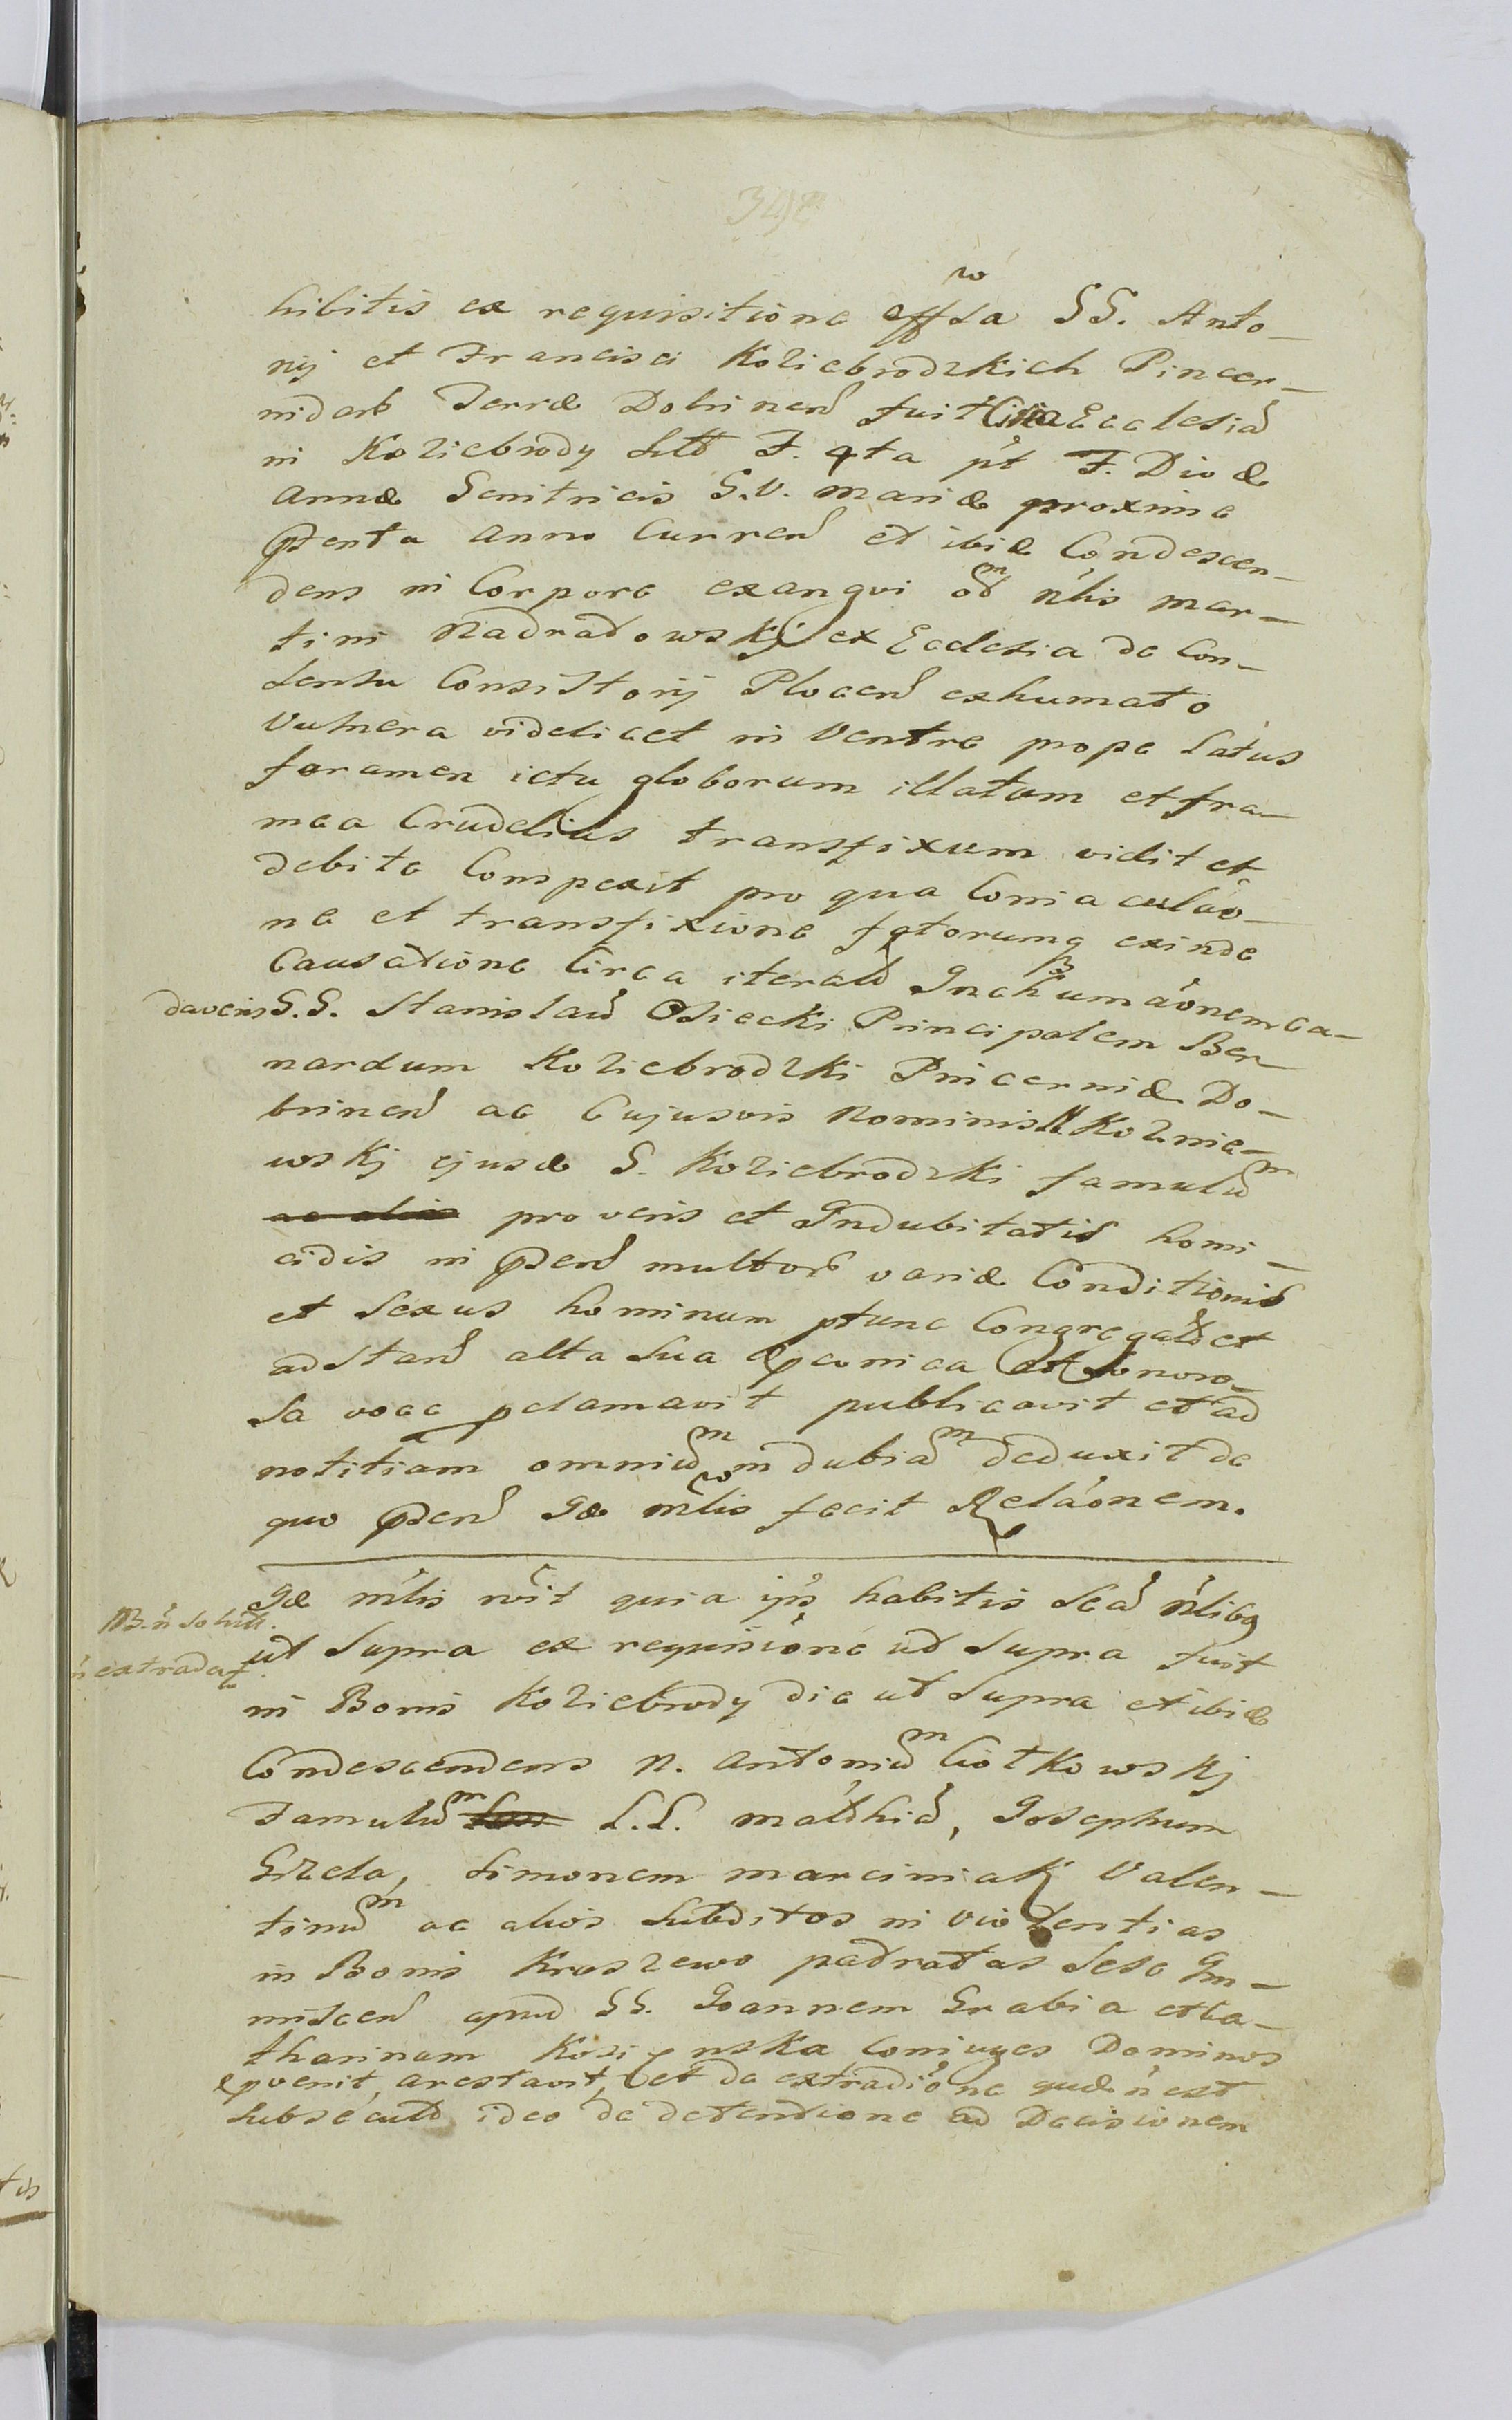 342
hibitis ex requisitione effva SS. Anto-
nij et Francisci Koziebrodzkich Pincer-
nidarb Terræ Dobrinen fuit Ecclesiã
in Koziebrody Sitt F. 4ta pt F. Divæ
Annæ Genitricis B.V. Mariæ proxime
pterita Anno Curren et ibid Condescen-
dens in Corpore exangvi od nlis Mar-
tini Nadratowskj ex Ecclesia de Con-
sensu Consistorij Plocen exhumato
Vulnera videlicet in Ventre prope Latus
foramen ictu globorum illatum et fra-
mea Crudelius transfixum vidit et
debite Conspexit pro qua Coniaculao-
ne et transfixione fatorumq exinde
Causatione Circa iterald Inchumaonem ca-
daveris G.G. Stanislaũ Osiecki Principalem Ber
nardum Koziebrodzki Pincernid Do-
brinen ac Cujusvis Nominis Kozmie-
wskj ejusd G. Koziebrodzki famulũm
ac alios pro veris et Indubitatis homi-
cidis in pten multor variæ Conditionis
et Sexus hominum ptunc Congregatt et
adstan alta sua et sonoro-
sa voce pclamavit publicavit et ad
notitiam omniũm indubiãm deduxit de
quo pten Id mlis fecit Relaonem.
Id mlis rvit quia ips habitis Secũ nlibq
NB. n solutt.
ut Supra ex requisione ut Supra fuit
n extradat
in Bonis Koziebrody die ut Supra et ibid
Condescendens N. Antoniũm Ciotkowskj
Famulũm L.L. Mathiã, Josephum
Gizela, Simonem Marciniak Valen-
tinũm ac alios Subditos in violentias
in Bonis Kraszewo patratas Sese Im-
miscen apud GG. Joannem Grabia et Ca-
tharinam Coniuges Dominos
pvenit, arestavit, et de extradione quæ n est
subsecutt ideo de detentione ad Decisionem